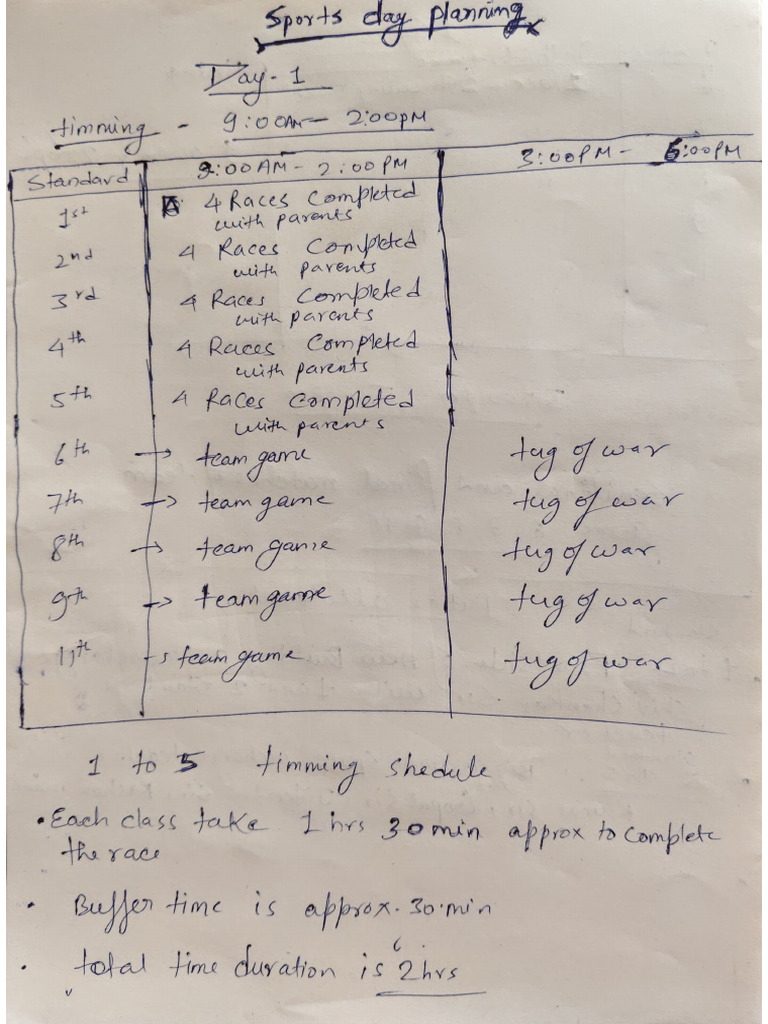 Sports day planning
Day - 1
timming - 9:00AM - 2:00PM
Standard 9:00AM - 2:00PM 3:00PM - 5:00PM
1st 4 Races Completed
with parents
2nd 4 Races Completed
with parents
3rd 4 Races Completed
with parents
4th 4 Races Completed
with parents
5th 4 Races Completed
with parents
6th → team game tug of war
7th → team game tug of war
8th → team game tug of war
9th → team game tug of war
11th → team game tug of war
1 to 5 timming shedule
• Each class take 1 hrs 30 min approx to complete
the race
• Buffer time is approx. 30 min
• total time duration is 2 hrs